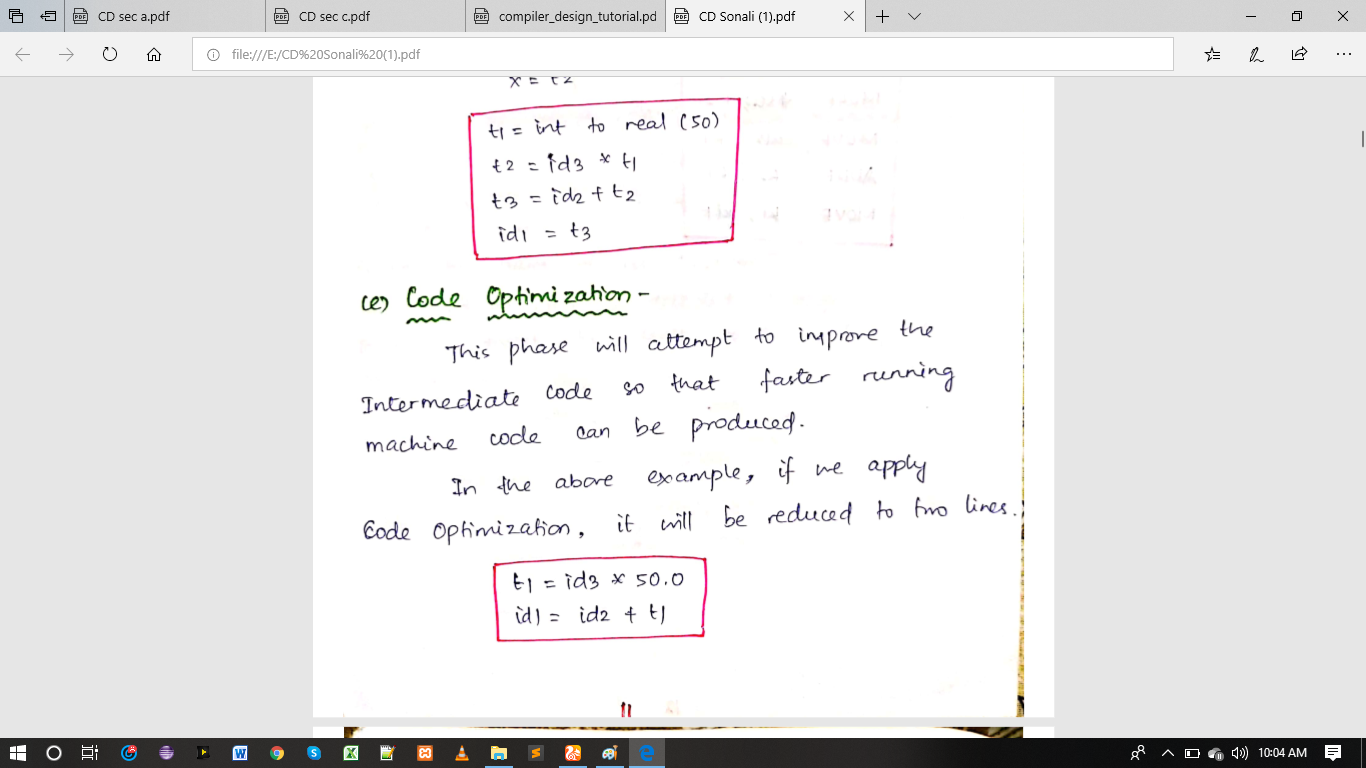 CD sec a.pdf
CD sec c.pdf
compiler_design_tutorial.pd
CD Sonali (1).pdf
file:///E:/CD%20Sonali%20(1).pdf
x = t2
t1 = int to real (50)
t2 = id3 * t1
t3 = id2 + t2
id1 = t3
(e) Code Optimization -
This phase will attempt to improve the
Intermediate code so that faster running
machine code can be produced.
In the above example, if we apply
Code Optimization, it will be reduced to two lines.
t1 = id3 * 50.0
id1 = id2 + t1
11
10:04 AM